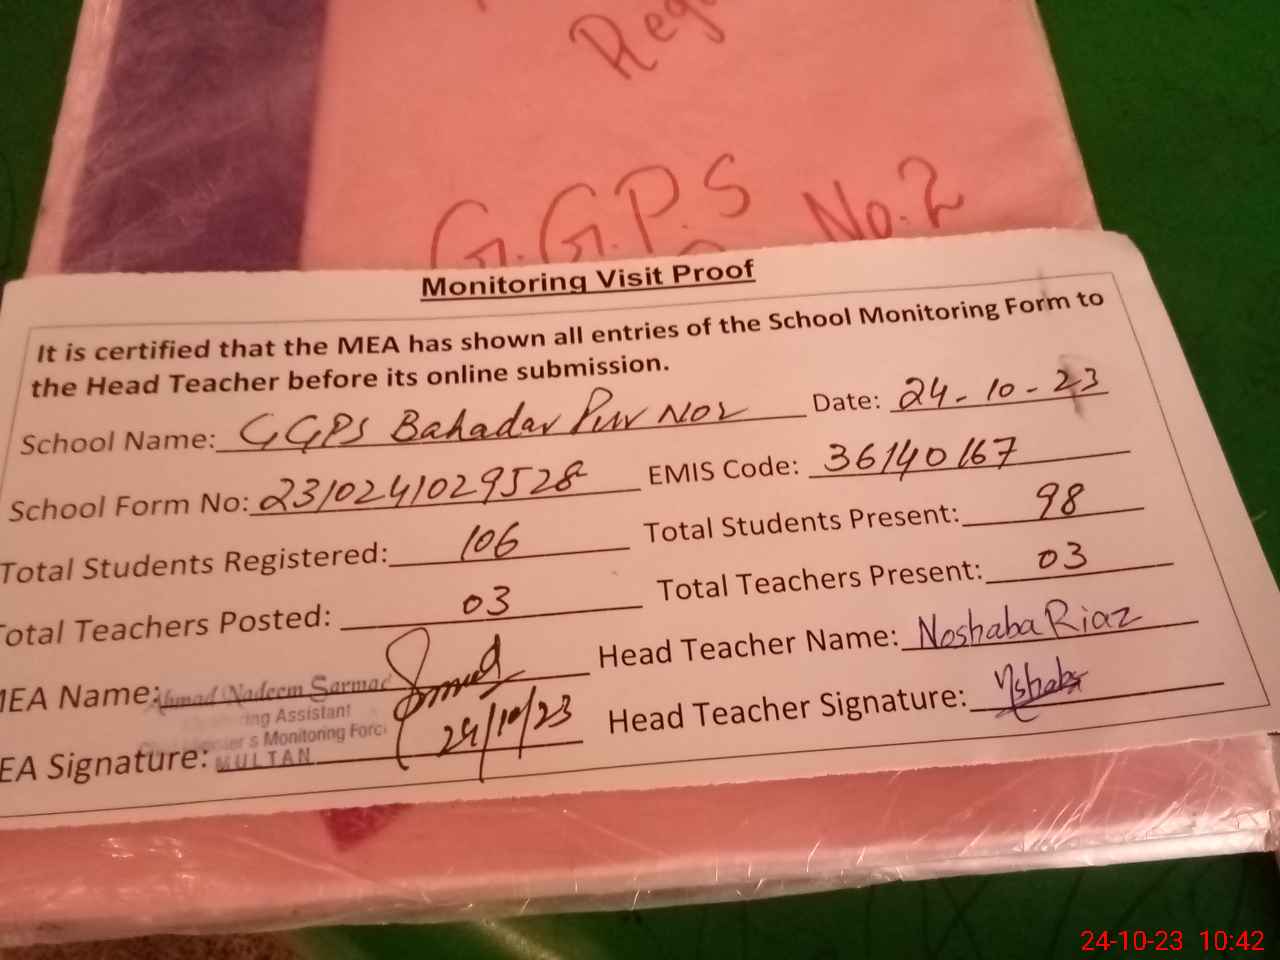 Reg
G.G.P.S No.2
Monitoring Visit Proof
It is certified that the MEA has shown all entries of the School Monitoring Form to
the Head Teacher before its online submission.
School Name: GGPS Bahadar Pur No2 Date: 24-10-23
School Form No: 2310241029528 EMIS Code: 36140167
Total Students Registered: 106 Total Students Present: 98
Total Teachers Posted: 03 Total Teachers Present: 03
MEA Name: Ahmad Nadeem Sarmad Head Teacher Name: Noshaba Riaz
ing Assistant
s Monitoring Forc
MULTAN
24/10/23
EA Signature: Head Teacher Signature: Nshaba
24-10-23 10:42